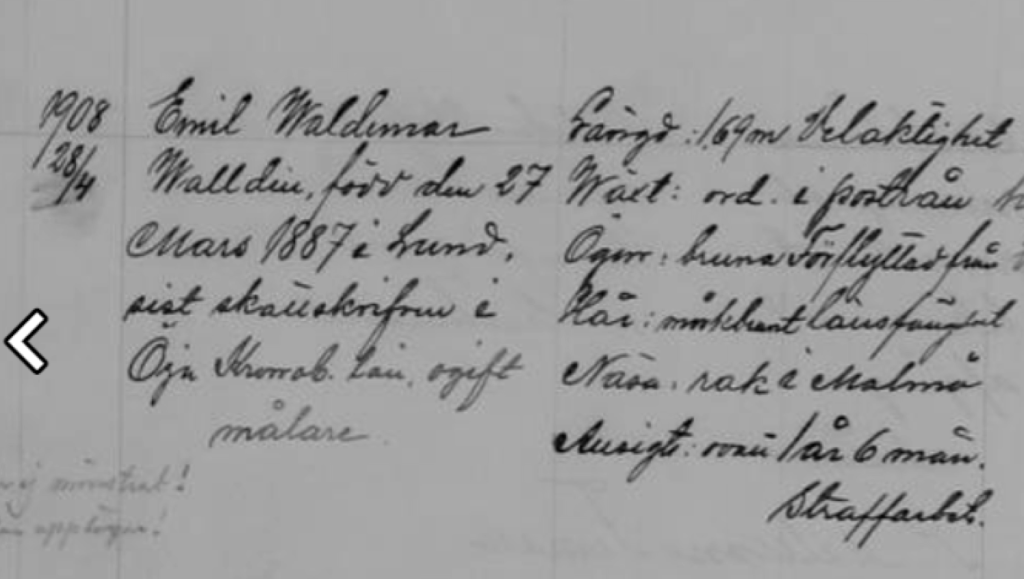 1908
28/4
Emil Waldemar
Walldin, född den 27
Mars 1887 i Lund,
sist skattskrifven i
Öja Kronob. län, ogift
målare
ej mönstrat!
Längd: 1,69 m
Wäxt: ord.
Ögon: bruna
Hår: mörkbrunt
Näsa: rak
Ansigte: ovalt
Delaktighet
i poströn
Förflyttad från
länsfängelset
i Malmö
1 år 6 mån.
Straffarbet.